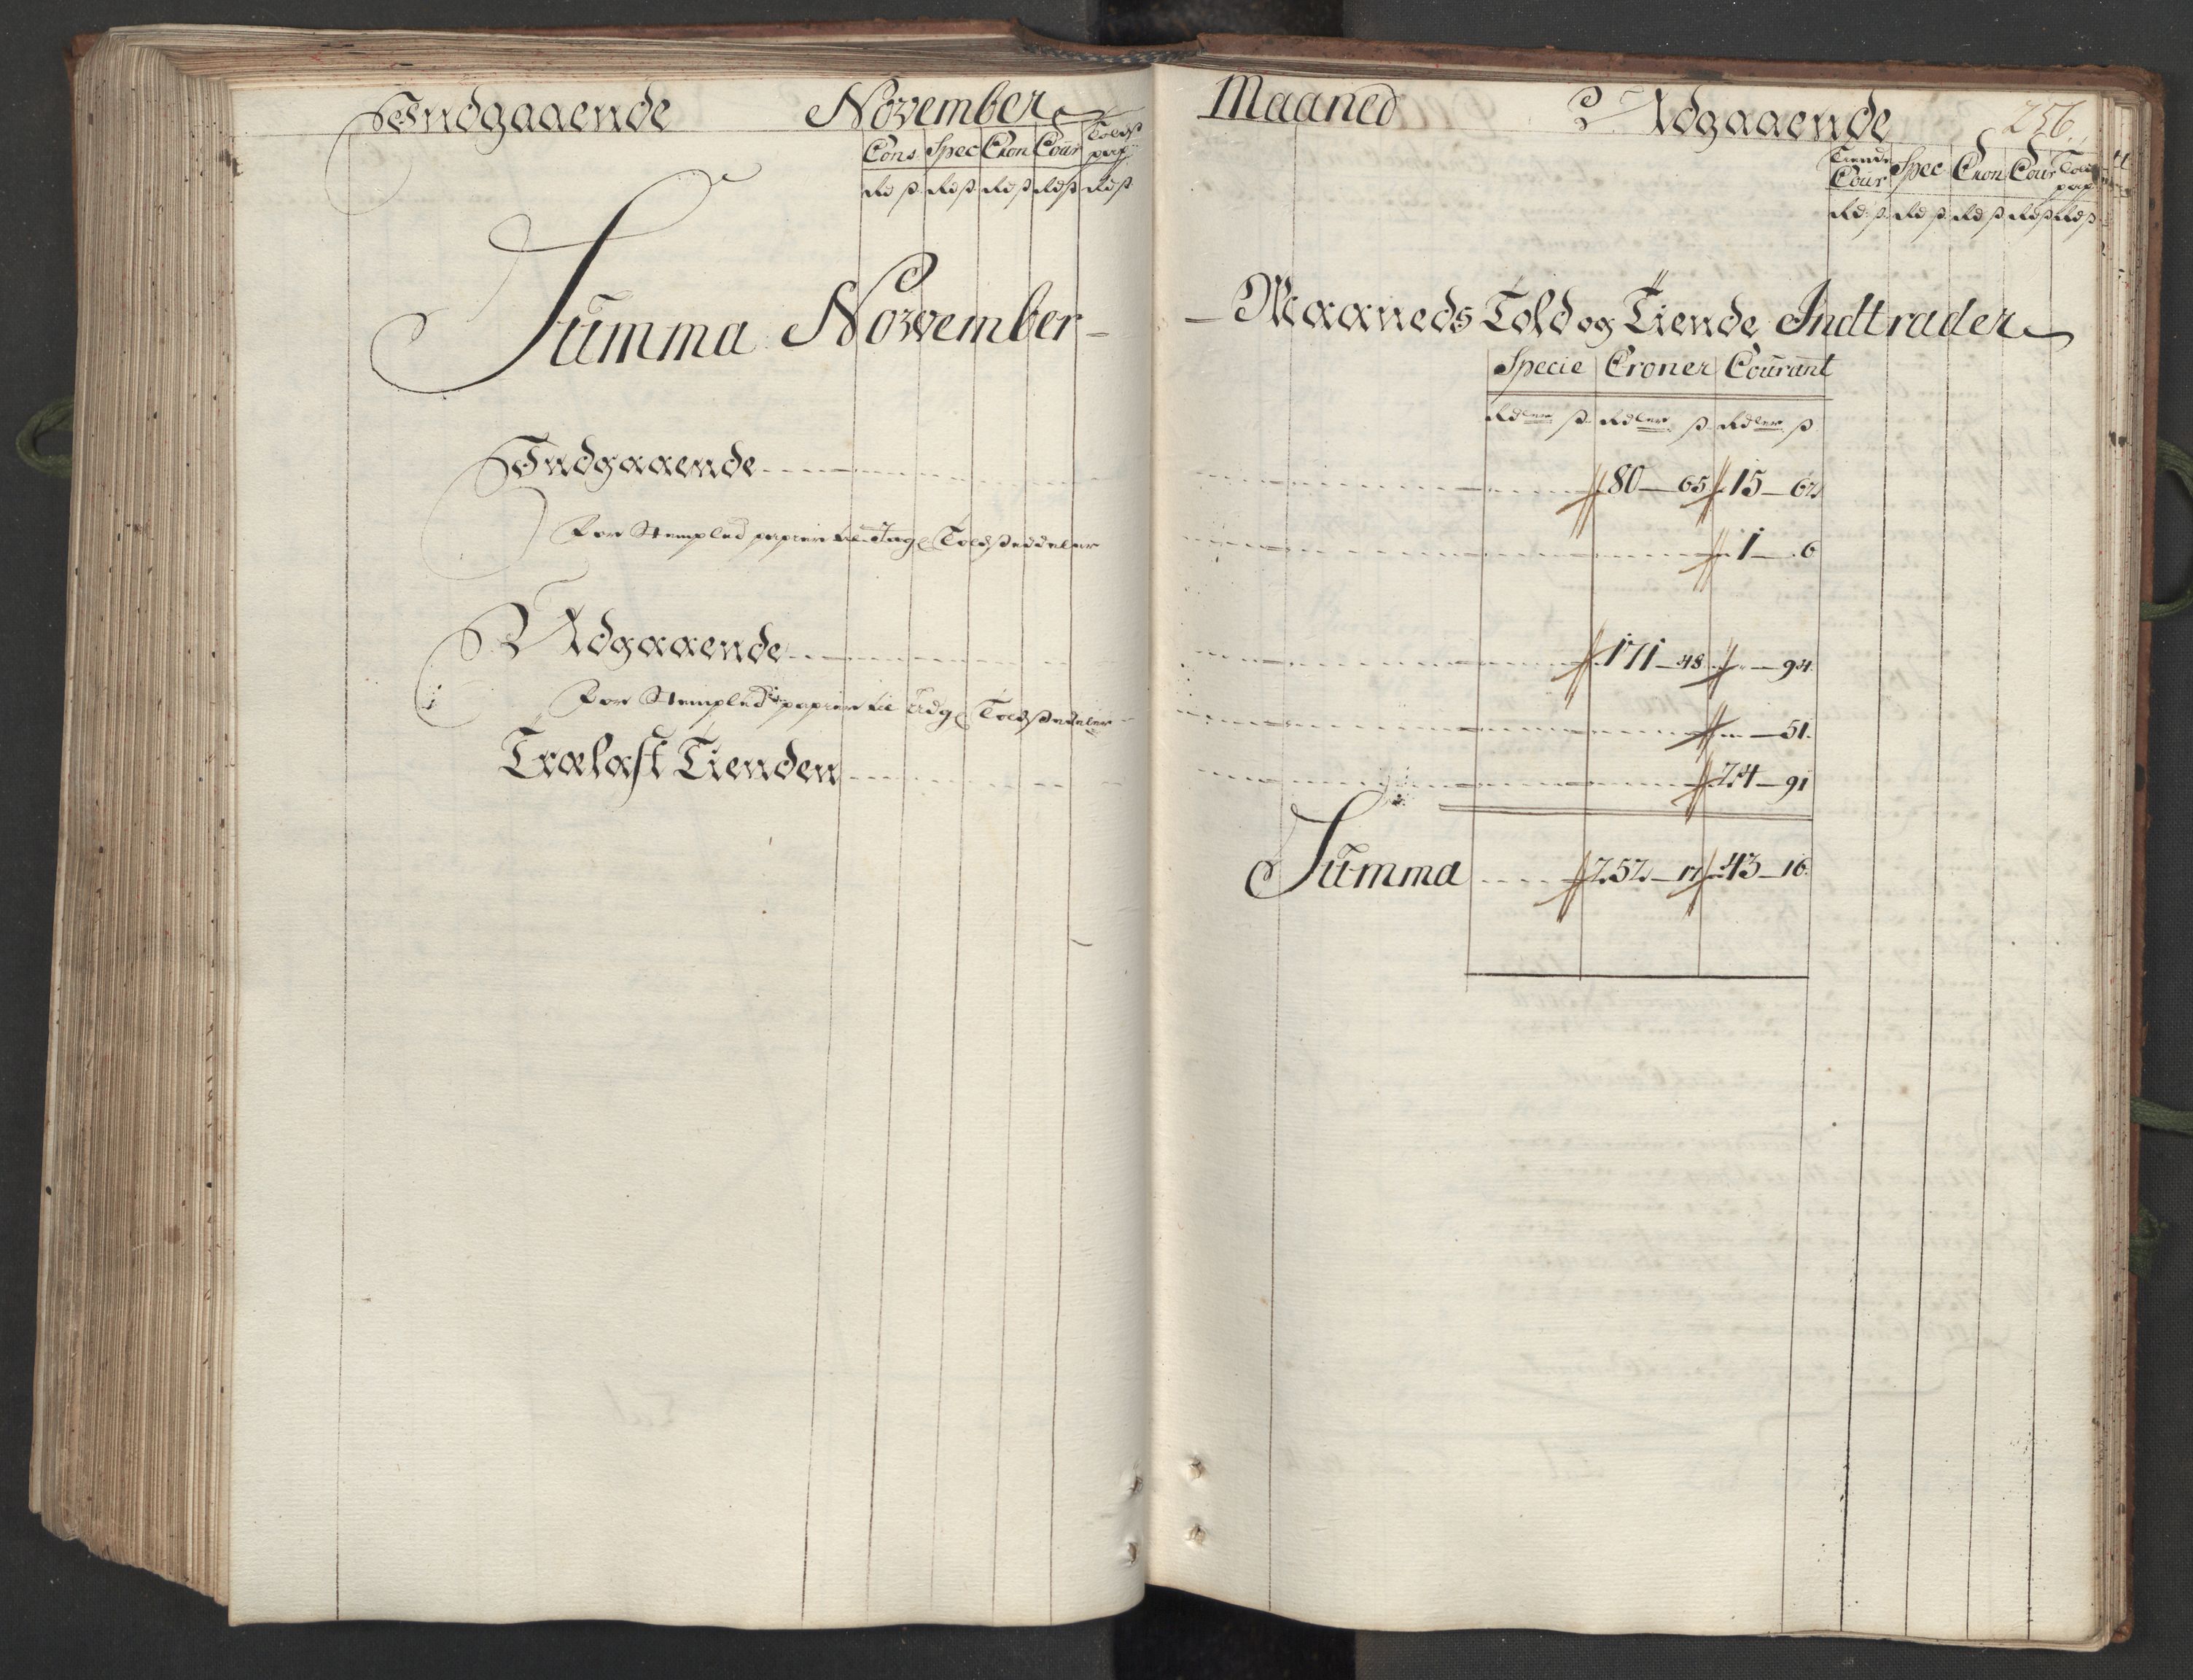 Indgaaende November Maaned Udgaaende 256.
Cons Spec Cron Cour Told paps
Rd ß Rd ß Rd ß Rd ß Rd ß
Tiende Cour Spec Cron Cour Told pap
Rd ß Rd ß Rd ß Rd ß Rd ß
Summa November - Maaneds Told og Tiende Indtrader
Specie Croner Courant
Rdler ß Rdler ß Rdler ß
Indgaaende 80 - 65 15 - 62
For Stempled papier til Indg Toldseddeler 1 - 6
Udgaaende 171 - 48 - 94
For Stempled papier til Udg Toldsedeler - 51
Trælast Tienden 24 - 91
Summa 252 - 17 43 - 16